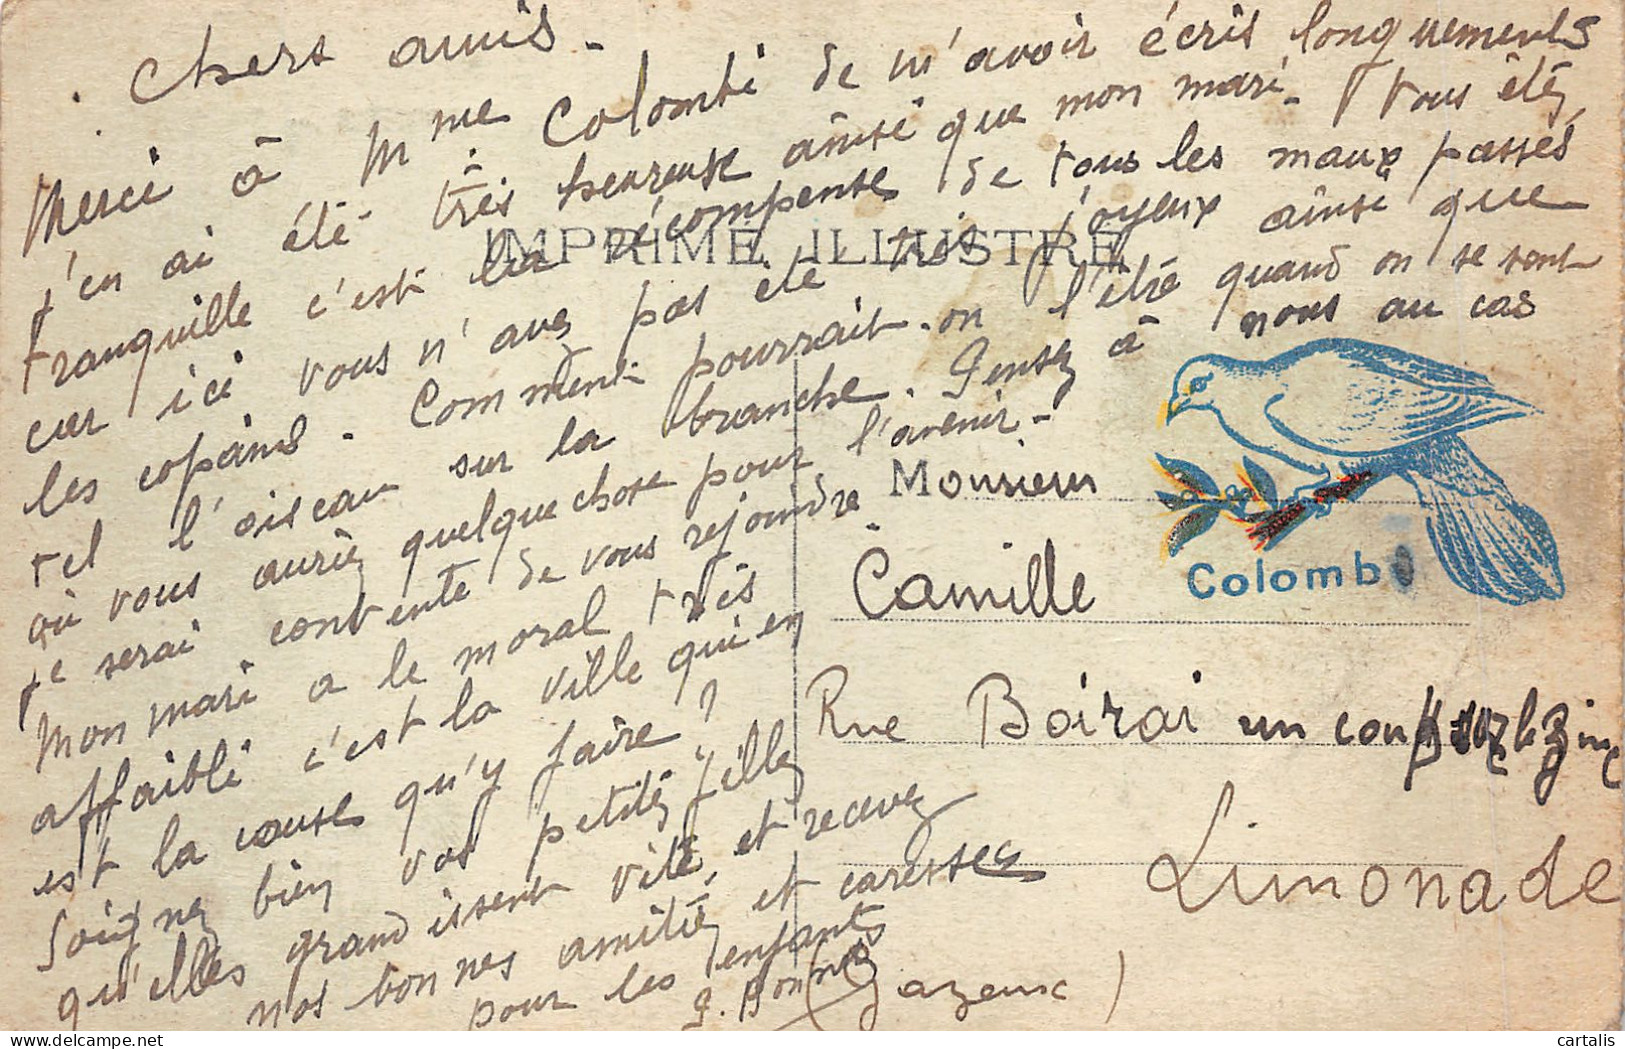 Chers amis.
Merci à Mme Colombi de m'avoir écris longuements
j'en ai été très heureuse ainsi que mon mari. Vous étéz
tranquille c'est la récompense de tous les maux passés
car ici vous n'avez pas été très joyeux ainsi que
les copains. Comment pourrait-on l'être quand on se sent
tel l'oiseau sur la branche. Pensez à nous au cas
où vous auriez quelquechose pour l'avenir.
je serai contente de vous rejoindre.
Mon mari a le moral très
affaibli c'est la ville qui en
est la cause qu'y faire ?
Soignez bien vos petites filles
qu'elles grandissent vite, et recevez
nos bonnes amitiés et caresses
pour les enfants
IMPRIMÉ ILLUSTRÉ
Monsieur
Colomb
Camille
Rue Boirai un coup sur le zinc
Limonade
(Gazeuse)
cartalis | Delcampe.net